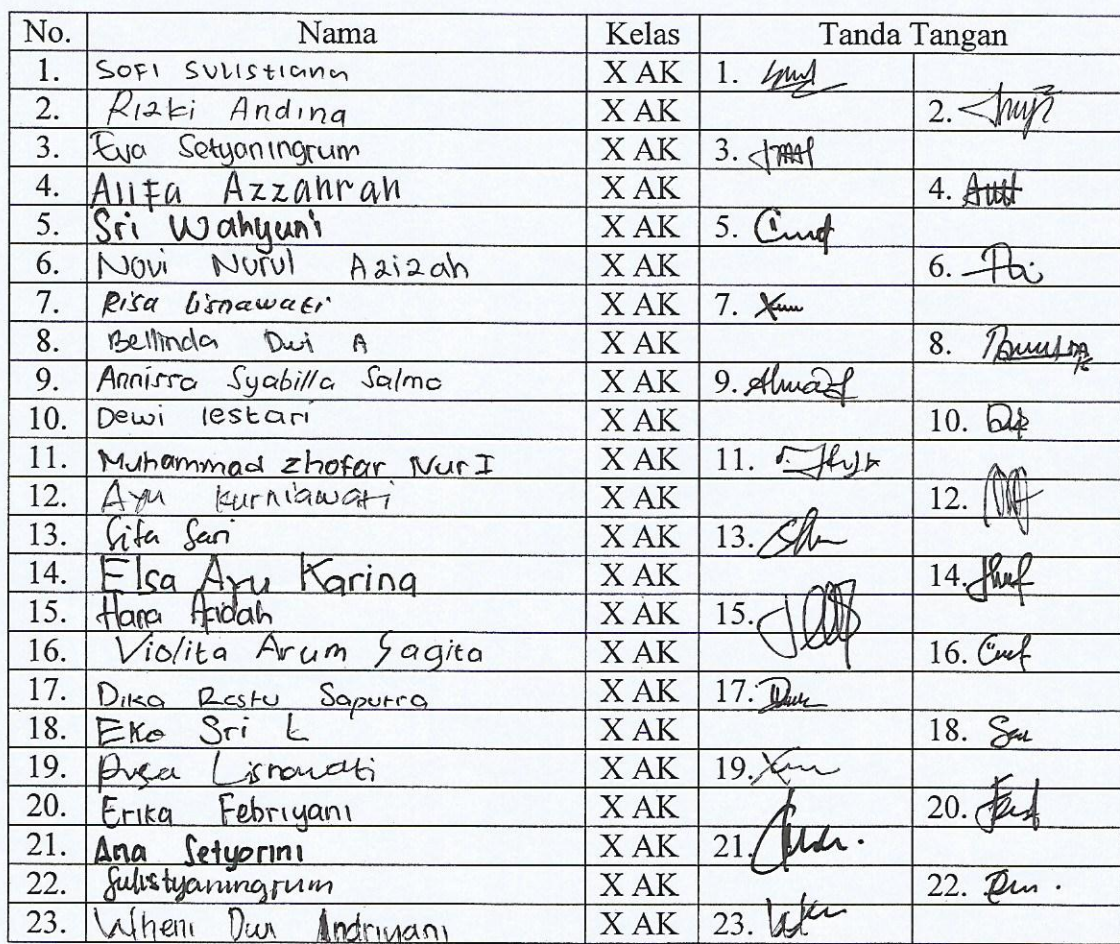 No. Nama Kelas Tanda Tangan
1. Sofi Sulistiana X AK 1.
2. Rizki Andina X AK 2.
3. Eva Setyaningrum X AK 3.
4. Alifa Azzahrah X AK 4.
5. Sri Wahyuni X AK 5.
6. Novi Nurul Azizah X AK 6.
7. Risa lisnawati X AK 7.
8. Bellinda Dwi A X AK 8.
9. Annisra Syabilla Salma X AK 9.
10. Dewi lestari X AK 10.
11. Muhammad zhofar Nur I X AK 11.
12. Ayu kurniawati X AK 12.
13. Sifa Sari X AK 13.
14. Elsa Ayu Karina X AK 14.
15. Hara X AK 15.
16. Violita Arum Sagita X AK 16.
17. Dika Restu Saputra X AK 17.
18. Eko Sri L X AK 18.
19. Lisnawati X AK 19.
20. Erika Febriyani X AK 20.
21. Ana Setyorini X AK 21.
22. Sulistyaningrum X AK 22.
23. Wheni Dwi Andriyani X AK 23.